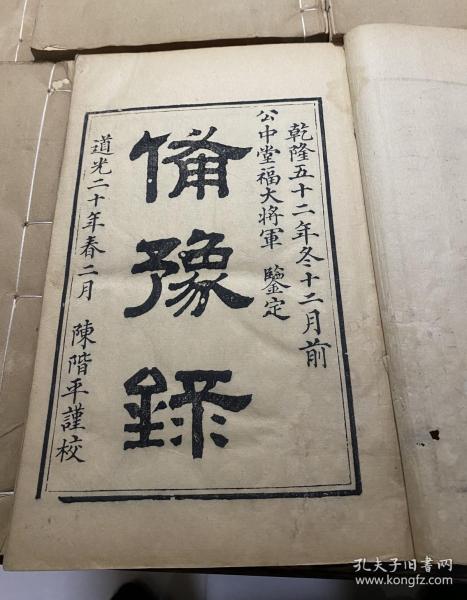 乾隆五十二年冬十二月前
公中堂福大将軍 鑒定
備豫録
道光二十年春二月 陳階平謹校
孔夫子旧书网
www.kongfz.com